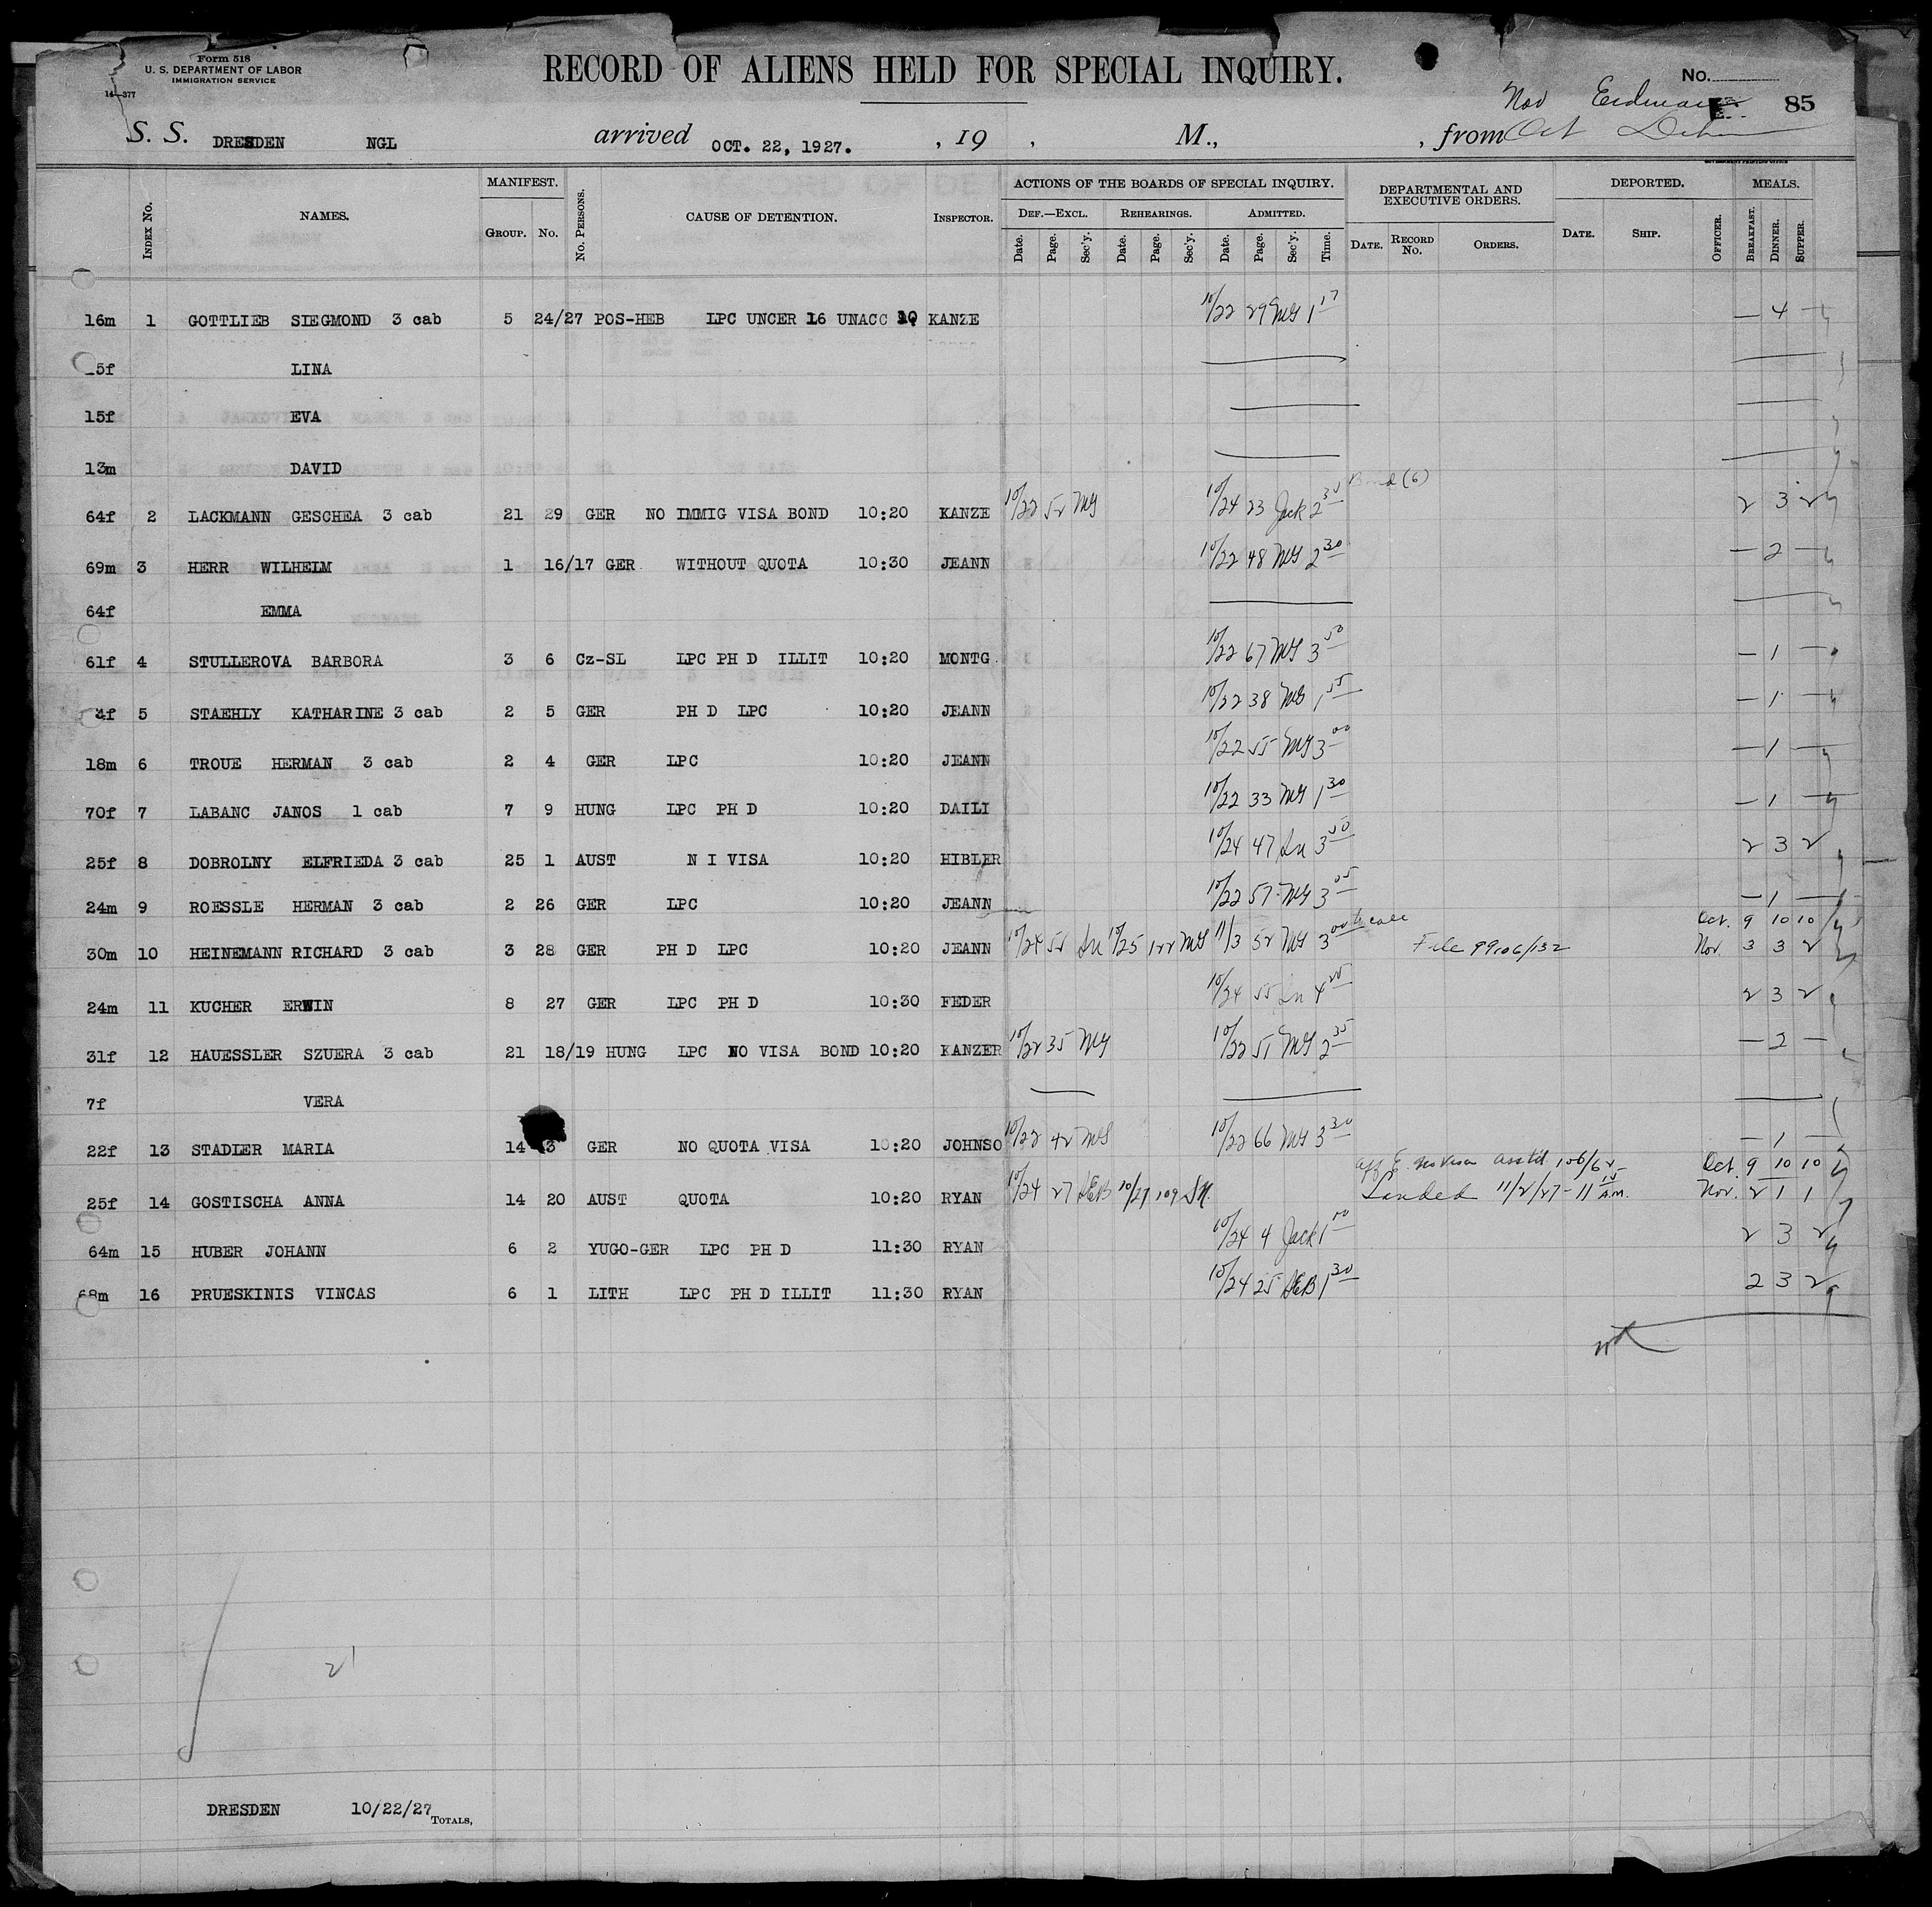 Form 518
U. S. DEPARTMENT OF LABOR
IMMIGRATION SERVICE
14—377
RECORD OF ALIENS HELD FOR SPECIAL INQUIRY.
No.
Nov
85
S. S. DRESDEN NGL arrived OCT. 22, 1927. , 19 , M., , from Oct
GOVERNMENT PRINTING OFFICE
INDEX No. NAMES. MANIFEST. GROUP. No. No. PERSONS. CAUSE OF DETENTION. INSPECTOR. ACTIONS OF THE BOARDS OF SPECIAL INQUIRY. DEF.—EXCL. Date. Page. Sec'y. REHEARINGS. Date. Page. Sec'y. ADMITTED. Date. Page. Sec'y. Time. DEPARTMENTAL AND EXECUTIVE ORDERS. DATE. RECORD No. ORDERS. DEPORTED. DATE. SHIP. OFFICER. MEALS. BREAKFAST. DINNER. SUPPER.
16m 1 GOTTLIEB SIEGMOND 3 cab 5 24/27 POS-HEB LPC UNCER 16 UNACC KANZE 10/22 29 MG 1 17 — 4 —
5f LINA
15f EVA
13m DAVID
64f 2 LACKMANN GESCHEA 3 cab 21 29 GER NO IMMIG VISA BOND 10:20 KANZE 10/22 52 MG 10/24 23 Jack 2 30 Bond (6) 2 3 2
69m 3 HERR WILHELM 1 16/17 GER WITHOUT QUOTA 10:30 JEANN 10/22 48 MG 2 30 — 2 —
64f EMMA
61f 4 STULLEROVA BARBORA 3 6 Cz-SL LPC PH D ILLIT 10:20 MONTG 10/22 67 MG 3 50 — 1 —
4f 5 STAEHLY KATHARINE 3 cab 2 5 GER PH D LPC 10:20 JEANN 10/22 38 MG 1 55 — 1 —
18m 6 TROUE HERMAN 3 cab 2 4 GER LPC 10:20 JEANN 10/22 55 MG 3 00 — 1 —
70f 7 LABANC JANOS 1 cab 7 9 HUNG LPC PH D 10:20 DAILI 10/22 33 MG 1 30 — 1 —
25f 8 DOBROLNY ELFRIEDA 3 cab 25 1 AUST N I VISA 10:20 HIBLER 10/24 47 Sn 3 50 2 3 2
24m 9 ROESSLE HERMAN 3 cab 2 26 GER LPC 10:20 JEANN 10/22 57 MG 3 05 — 1 —
30m 10 HEINEMANN RICHARD 3 cab 3 28 GER PH D LPC 10:20 JEANN 10/24 52 Sn 10/25 122 MG 11/3 52 MG 3 00 to call File 99106/132 Oct. 9 10 10 Nov. 3 3 2
24m 11 KUCHER ERWIN 8 27 GER LPC PH D 10:30 FEDER 10/24 55 Sn 4 2 3 2
31f 12 HAUESSLER SZUERA 3 cab 21 18/19 HUNG LPC NO VISA BOND 10:20 KANZER 10/22 35 MG 10/22 51 MG 2 35 — 2 —
7f VERA
22f 13 STADLER MARIA 14 3 GER NO QUOTA VISA 10:20 JOHNSO 10/22 42 MG 10/22 66 MG 3 30 — 1 —
25f 14 GOSTISCHA ANNA 14 20 AUST QUOTA 10:20 RYAN 10/24 27 DEB 10/27 109 Sn. Landed 11/2/27 - 11 15 A.M. Oct. 9 10 10 Nov. 2 1 1
64m 15 HUBER JOHANN 6 2 YUGO-GER LPC PH D 11:30 RYAN 10/24 4 Jack 1 00 2 3 2
68m 16 PRUESKINIS VINCAS 6 1 LITH LPC PH D ILLIT 11:30 RYAN 10/24 25 DEB 1 30 2 3 2
21
DRESDEN 10/22/27 TOTALS,